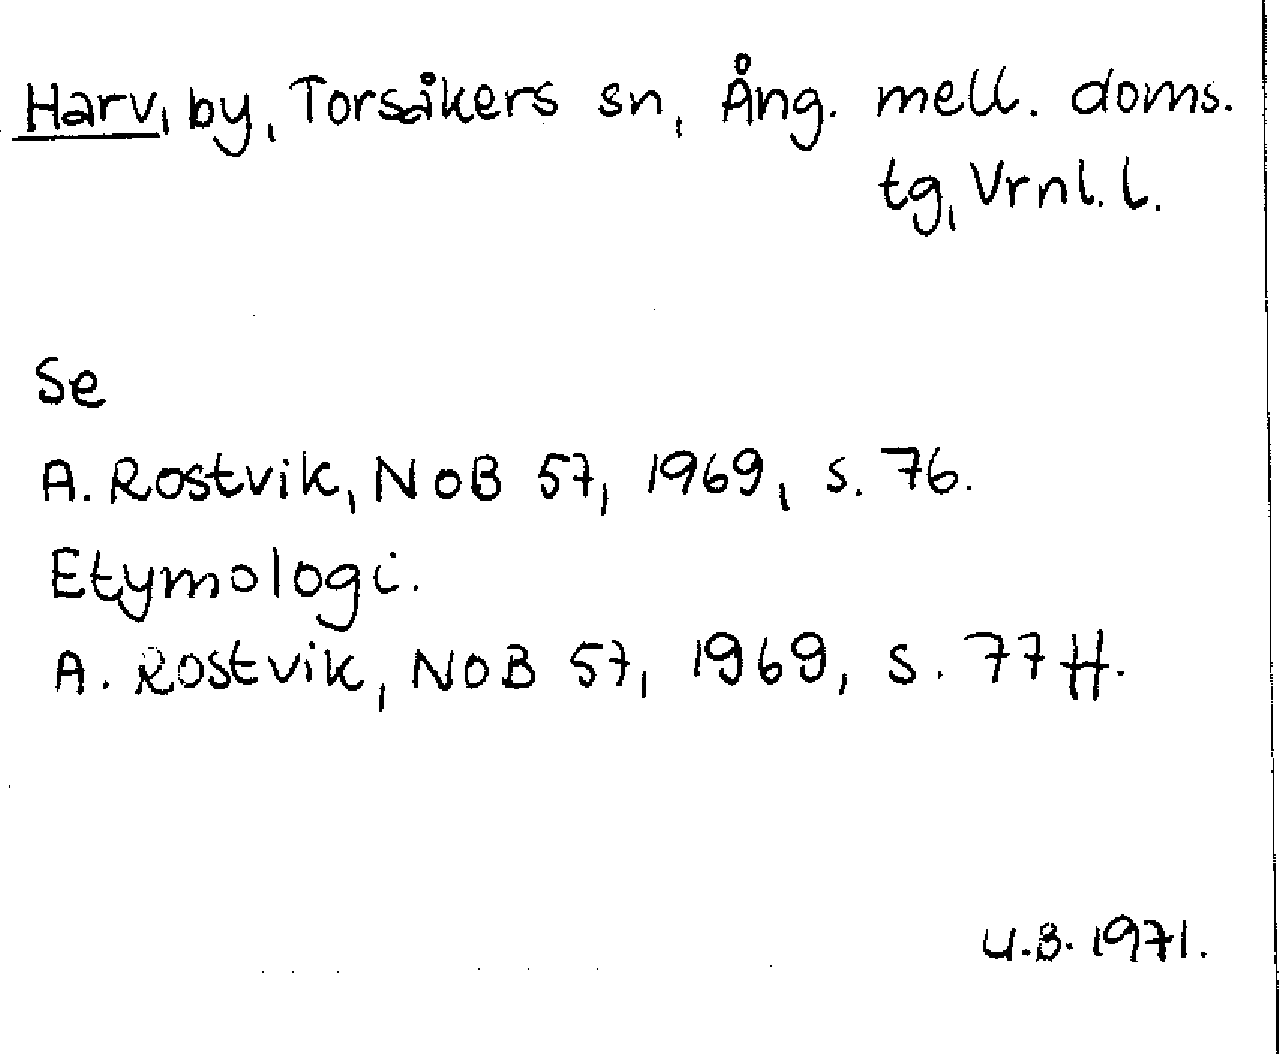 Harv, by, Torsåkers sn, Ång. mell. doms.
tg, Vrnl. l.
Se
A. Rostvik, NoB 57, 1969, s. 76.
Etymologi.
A. Rostvik, NoB 57, 1969, s. 77 ff.
U.B. 1971.